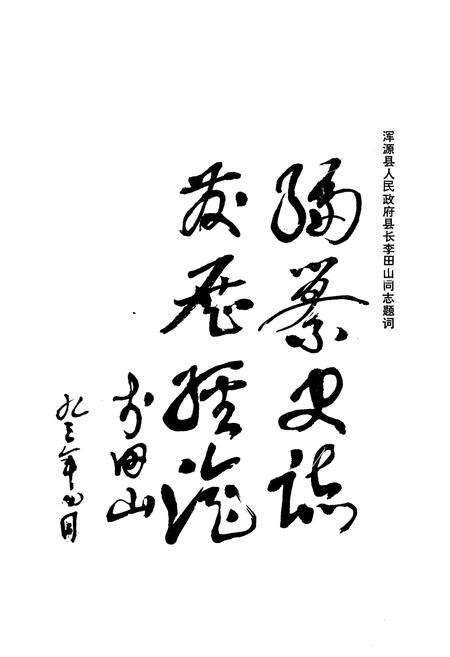 浑源县人民政府县长李田山同志题词
编纂史志
发展经济
李田山
九三年四月